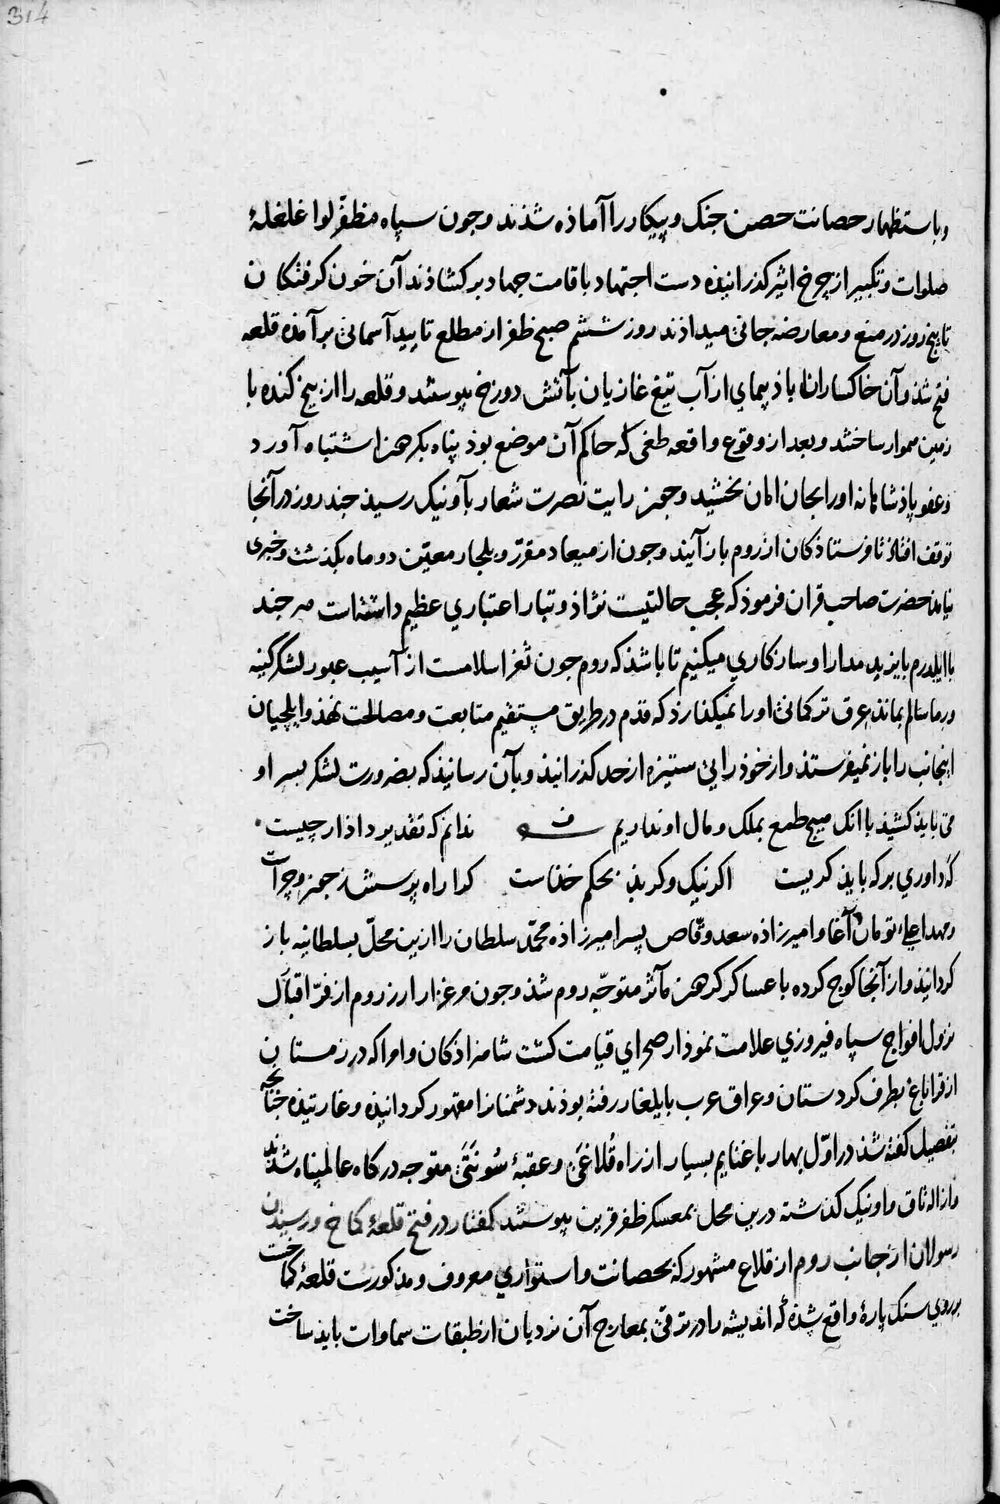 314
و باستظهار حصانت حصن جنک و پیکار را آماذه شذند و جون سپاه مظفّر لوا غلغلهٔ
صلوات و تکبیر از چرخ اثیر کذرانیذه دست اجتهاد باقامت جهاد برکشاذند آن خون کرفتکان
تا پنج روز در منع و معارضه جانی میداذند روز ششم صبح ظفر از مطلع تایید آسمانی برآمذه قلعه
فتح شذ و آن خاکساران باذ پیمای از آب تیغ غازیان بآتش دوزخ پیوستند و قلعه را از بیخ کنده با
زمین هموار ساختند و بعد از وقوع واقعه طغی که حاکم آن موضع بوذ پناه بکرهز اشتباه آورد
و عفو پاذشاهانه او را بجان امان بخشید و جون رایت نصرت شعار بآونیک رسیذ جند روز در آنجا
توقف افتاذ تا فرستاذکان از روم باز آیند و جون از میعاد مقرّر و بلجار معیّن دو ماه بکذشت و خبری
نیامذ حضرت صاحب قران فرموذ که عجب حالتیست نژاذ و تبار اعتباری عظیم داشته است هر جند
با ایلدرم بایزید مدارا و سازکاری میکنیم تا باشذ که روم جون ثغر اسلامست از آسیب عبور لشکر کینه
ور ما سالم بماند عرق ترکمانی او را نمیکذارذ که قدم در طریق مستقیم متابعت و مصالحت نهذ و ایلچیان
اینجانب را باز نمیفرستذ و از خوذ رایی ستیزه از حد کذرانیذ و بآن رسانیذ که بضرورت لشکر بسر او
می بایذ کشیذ با آنک هیچ طمع بملک و مال او نداریم ندانم که تقدیر داذار چیست
که داوری بر که بایذ کریست اکر نیک و کر بذ بحکم خذاست کرا راه پرسش ز جون و چراست
و مهد اعلی تومان آغا و امیرزاذه سعد وقّاص پسر امیرزاذه محمّد سلطان را ازین محلّ بسلطانیه باز
کردانیذ و از آنجا کوج کرده با عساکر کرهز مآثر متوجّه روم شذ و جون مرغزار ارزروم از فرّ اقبال
نزول افواج سپاه فیروزی علامت نموذار صحرای قیامت کشت شاهزاذکان و امرا که در زمستان
از قراباغ بطرف کردستان و عراق عرب بایلغار رفته بوذند دشمنانرا مقهور کردانیذه و غارتیذه جنانچه
بتفصیل کفته شذ در اوّل بهار با غنایم بسیار از راه قُلاغَی و عقبهٔ سُونَتَی متوجه درکاه عالمپناه شذند
و از اله تاق و اونیک کذشته درین محل بمعسکر ظفر قرین پیوستند کفتار در فتح قلعهٔ کماخ و رسیذن
رسولان از جانب روم از قلاع مشهور که بحصانت و استواری معروف و مذکورست قلعهٔ کماخست
بر روی سنک پارهٔ واقع شذه که اندیشه را در ترقی بمعارج آن نردبان از طبقات سماوات بایذ ساخت